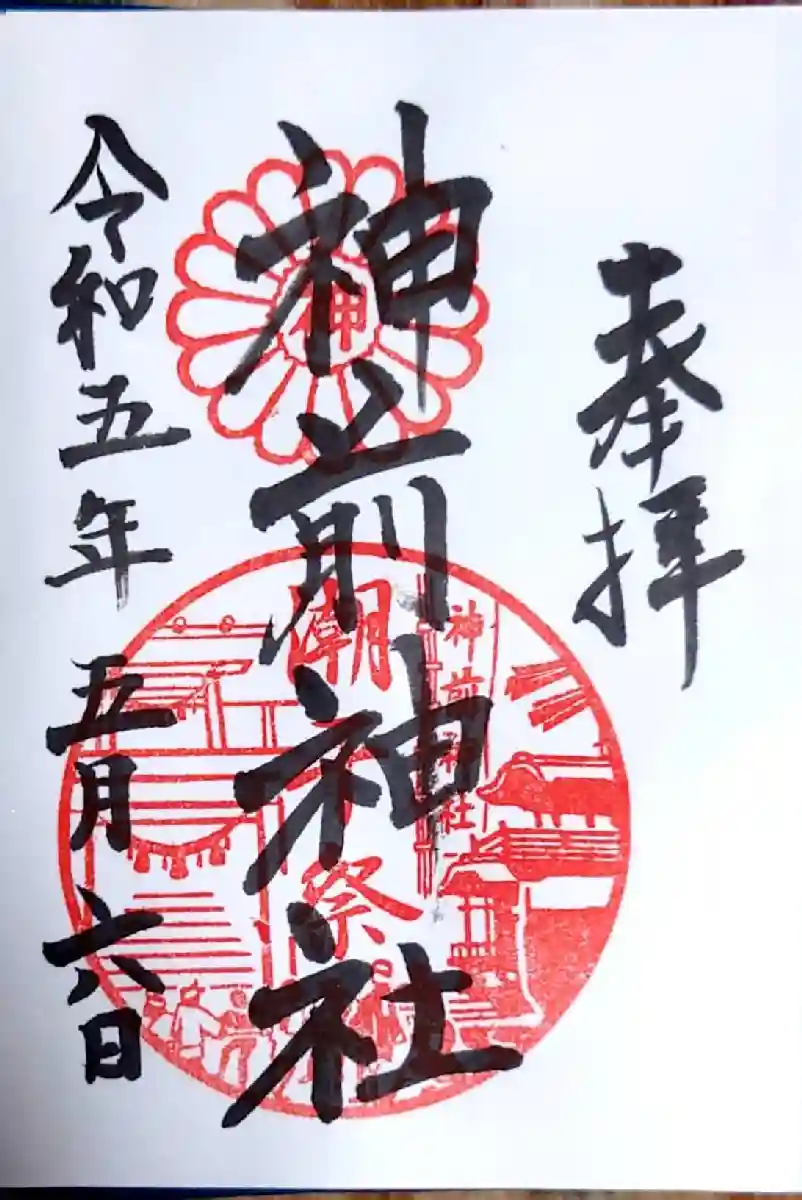 奉拝
神前神社
令和五年五月六日
神
潮祭
神前神社